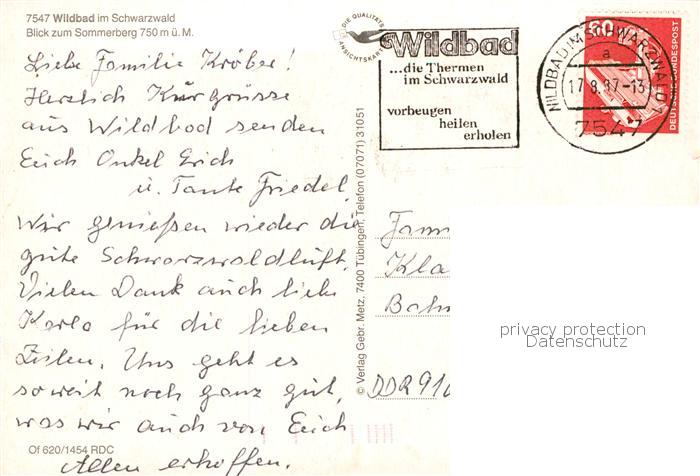 7547 Wildbad im Schwarzwald
Blick zum Sommerberg 750 m ü. M.
Liebe Familie Kröber!
Herzlich Kurgrüsse
aus Wildbad senden
Euch Onkel Erich
u. Tante Friedel.
Wir genießen wieder die
gute Schwarzwaldluft.
Vielen Dank auch liebe
Karla für die lieben
Zeilen. Uns geht es
soweit noch ganz gut,
was wir auch von Euch
Allen erhoffen.
Of 620/1454 RDC
DIE QUALITÄTS
ANSICHTSKARTE
© Verlag Gebr. Metz, 7400 Tübingen, Telefon (07071) 31051
Wildbad
...die Thermen
im Schwarzwald
vorbeugen
heilen
erholen
WILDBAD IM SCHWARZWALD 1
a
17.8.87-13
7547
60
DEUTSCHE BUNDESPOST
Fam
Kla
Bah
DDR 910
privacy protection
Datenschutz